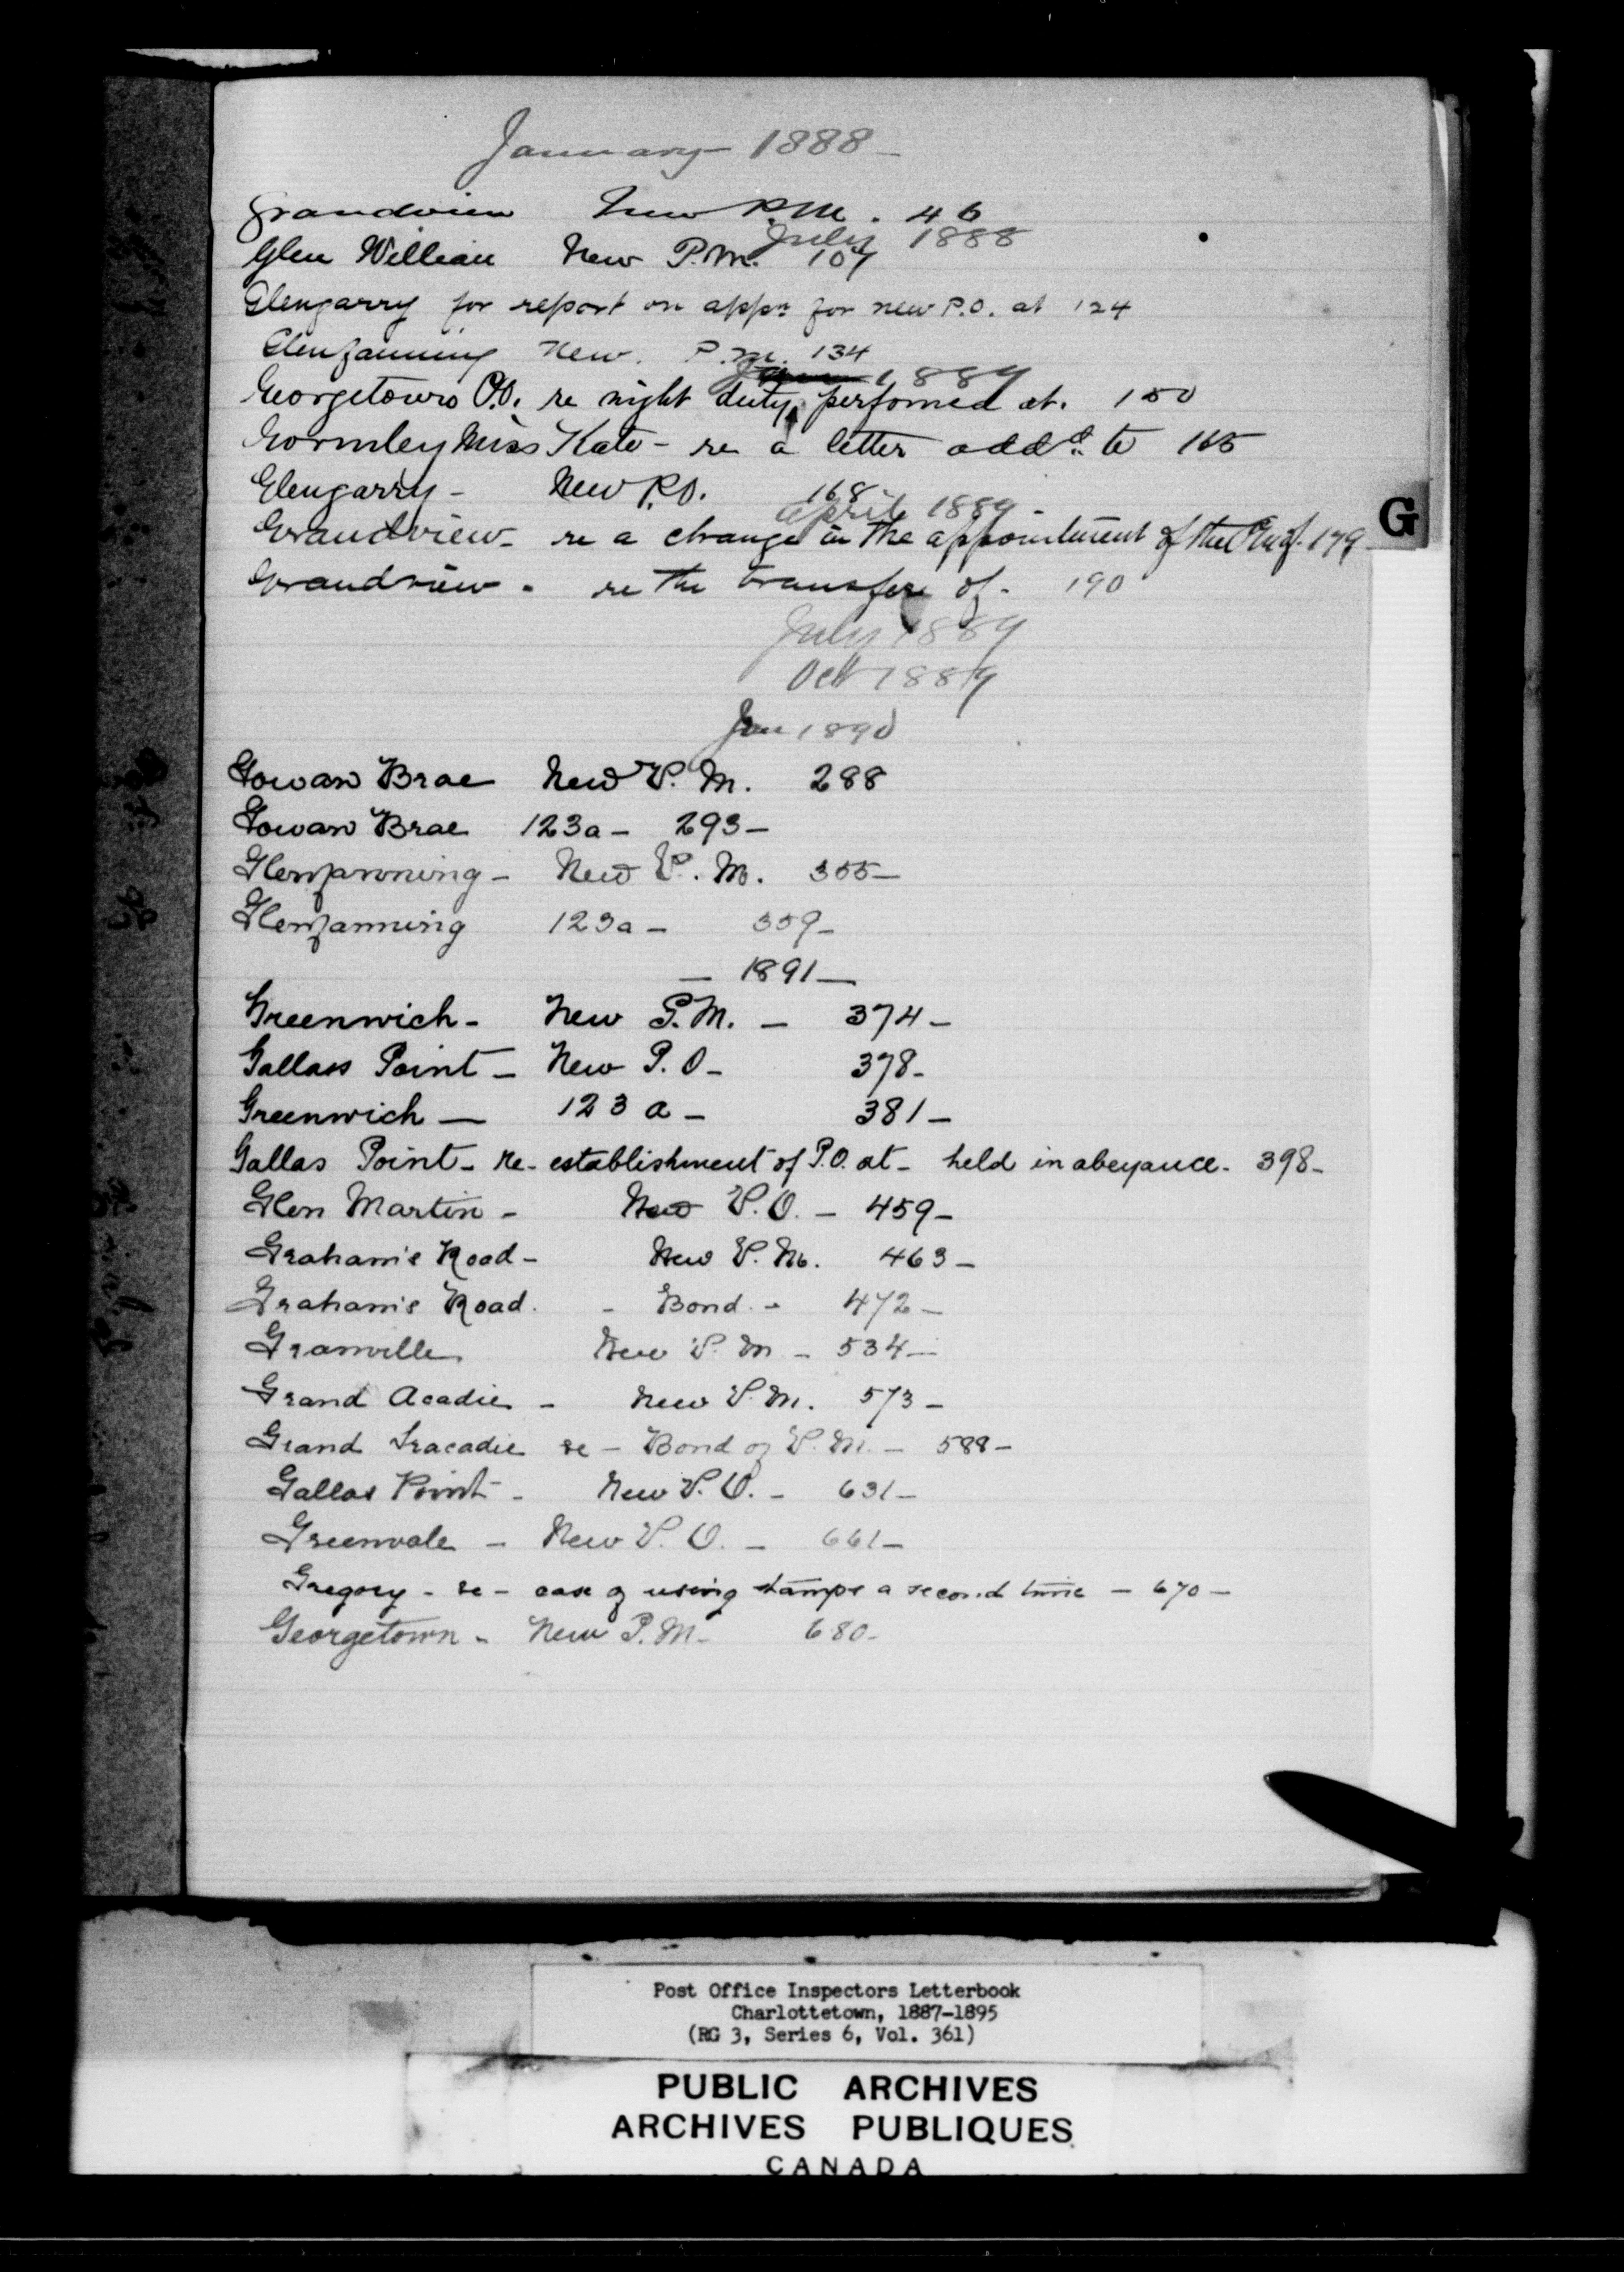 January 1888 -
Grandview New P.M. 46
July 1888
Glen William New P.M. 107
Glengarry for report on appn for new P.O. at 124
Glenfanning New. P.M. 134
1889
Georgetown P.O. re night duty performed at. 150
Gormley Miss Kate - re a letter addd. to 165
Glengarry - New P.O. 168
April 1889 -
Grandview - re a change in the appointment of the 179
Grandview - re the transfer of - 190
July 1889
Oct 1889
Jan 1890
Gowan Brae New P.M. 288
Gowan Brae 123a - 293 -
Glenfanning - New P.M. 355 -
Glenfanning 123a - 359 -
- 1891 -
Greenwich - New P.M. - 374 -
Gallass Point - New P.O - 378 -
Greenwich - 123 a - 381 -
Gallas Point - re - establishment of P.O. at - held in abeyance - 398 -
Glen Martin - New P.O. - 459 -
Graham's Road - New P.M. 463 -
Graham's Road. - Bond - 472 -
Granville New P.M - 534 -
Grand Acadie - New P.M. 573 -
Grand Tracadie re - Bond of P.M. - 588 -
Gallas Point - New P.O. - 631 -
Greenvale - New P.O. - 661 -
Gregory - re - case of using stamps a second time - 670 -
Georgetown - New P.M - 680 -
G
Post Office Inspectors Letterbook
Charlottetown, 1887-1895
(RG 3, Series 6, Vol. 361)
PUBLIC ARCHIVES
ARCHIVES PUBLIQUES
CANADA